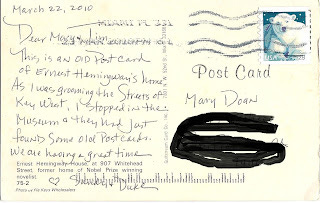 March 22, 2010
MIAMI FL 331
Dear Mary + Jim,
This is an old Post card
of Ernest Hemingway's home.
As I was grooming the Streets of
Key West, I stopped in the
Museum & they had just
found some old Postcards.
We are having a great time
Ernest Hemingway House, at 907 Whitehead
Street, former home of Nobel Prize winning
novelist.
75-2
Photo by Flo Keys Wholesalers
Duke
Post Card
Mary Doan